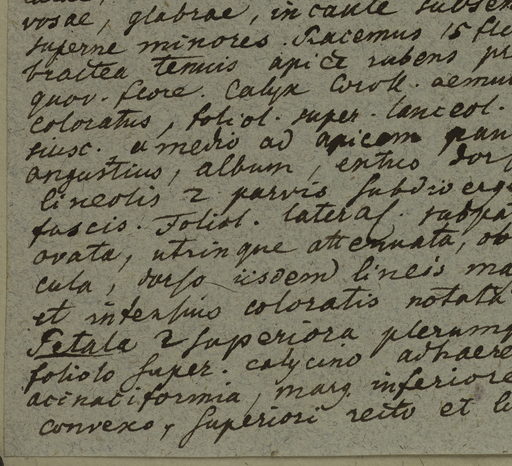 vosae, glabrae, in caule subsen
superne minores. Racemus 15 flo
bractea tenuis apice rubens pr
quov. flore. Calyx Coroll. aemu
coloratus, foliol. super. lanceol.
fusc. a medio ad apicem pan
angustius, album, entus dors
lineolis 2 parvis subdiverg
fuscis. Foliol. lateral. subpat
ovata, utrinque attenuata, ob
cula, dorso iisdem lineis ma
et intensius coloratis notata
Petala 2 superiora plerumq
foliolo super. calycino adhaere
acinaciformia, marg. inferiore
convexo, superiori recto et li